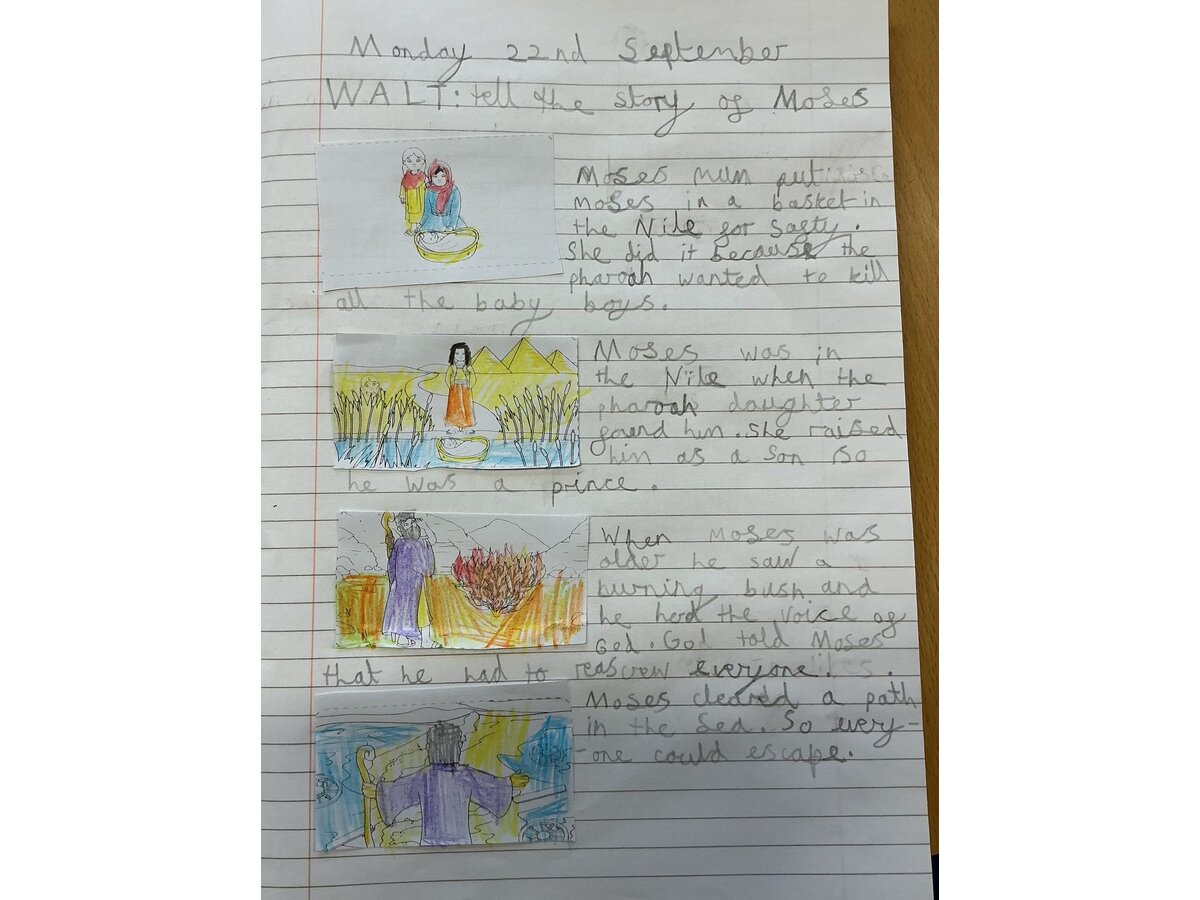 Monday 22nd September
WALT: tell the story of Moses
Moses mum put
moses in a basket in
the Nile for safty.
She did it because the
pharoah wanted to kill
all the baby boys.
Moses was in
the Nile when the
pharoah daughter
found him. She raised
him as a son so
he was a prince.
When Moses was
older he saw a
burning bush and
he herd the voice of
God. God told Moses
that he had to reascrew everyone.
Moses cleared a path
in the Sea. So every-
-one could escape.